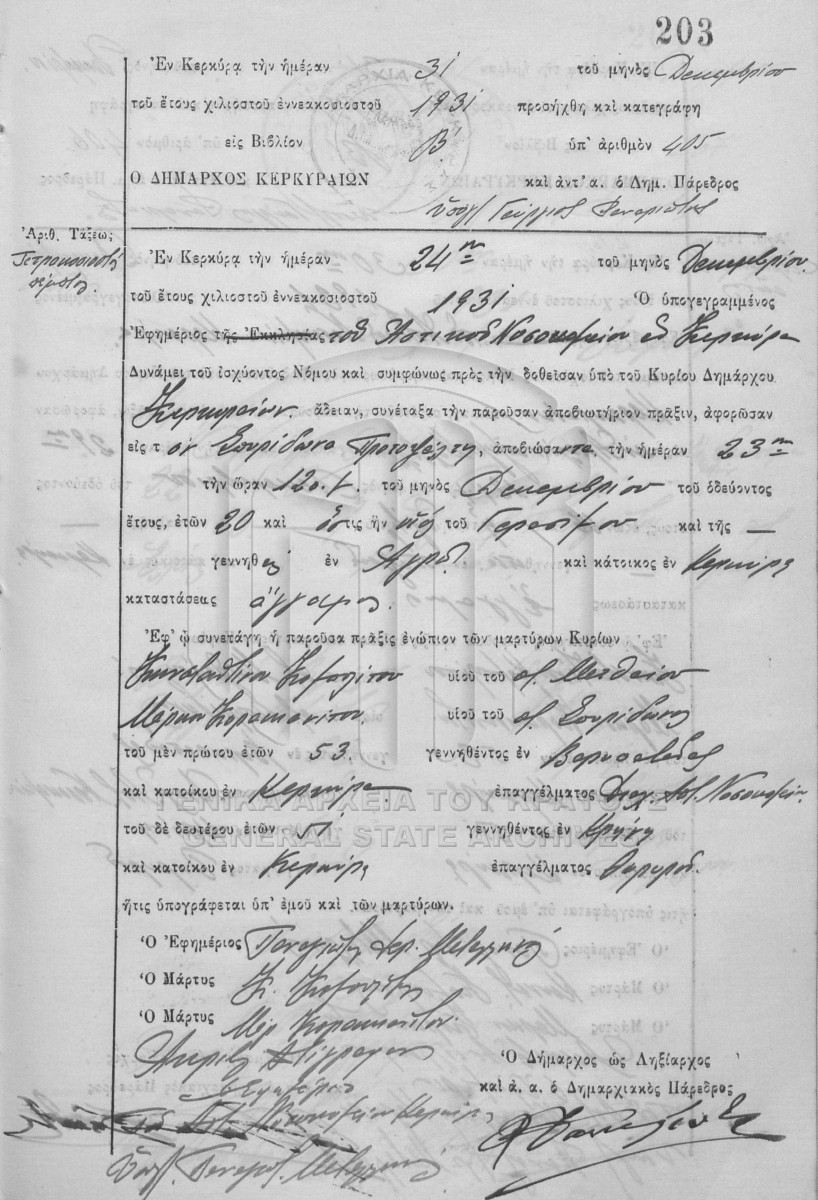 203
Ἐν Κερκύρᾳ τὴν ἡμέραν 31 τοῦ μηνὸς Δεκεμβρίου
τοῦ ἔτους χιλιοστοῦ ἐννεακοσιοστοῦ 1931 προσήχθη καὶ κατεγράφη
εἰς Βιβλίον Β' ὑπ' ἀριθμὸν 405
Ο ΔΗΜΑΡΧΟΣ ΚΕΡΚΥΡΑΙΩΝ καὶ ἀντ' α. ὁ Δημ. Πάρεδρος
ὑπογ. Γεώργιος
Ἀριθ. Τάξεως
Τετρακοσιοστὴ
πέμπτη.
Ἐν Κερκύρᾳ τὴν ἡμέραν 24ην τοῦ μηνὸς Δεκεμβρίου
τοῦ ἔτους χιλιοστοῦ ἐννεακοσιοστοῦ 1931 Ὁ ὑπογεγραμμένος
Ἐφημέριος τῆς Ἐκκλησίας τοῦ Ἀστικοῦ Νοσοκομείου ἐν Κερκύρᾳ
Δυνάμει τοῦ ἰσχύοντος Νόμου καὶ συμφώνως πρὸς τὴν δοθεῖσαν ὑπὸ τοῦ Κυρίου Δημάρχου
Κερκυραίων ἄδειαν, συνέταξα τὴν παροῦσαν ἀποβιωτήριον πρᾶξιν, ἀφορῶσαν
εἰς τ ὸν Σπυρίδωνα Πρωτοψάλτη, ἀποβιώσαντα τὴν ἡμέραν 23ην
τὴν ὥραν 12 τοῦ μηνὸς Δεκεμβρίου τοῦ ὁδεύοντος
ἔτους, ἐτῶν 20 καὶ ὅστις ἦν υἱὸς τοῦ Γερασίμου καὶ τῆς —
γεννηθεὶς ἐν Ἀγρῷ καὶ κάτοικος ἐν Κερκύρᾳ
καταστάσεως ἄγαμος.
Ἐφ' ᾧ συνετάγη ἡ παροῦσα πρᾶξις ἐνώπιον τῶν μαρτύρων Κυρίων
Κωνσταντίνου υἱοῦ τοῦ Ματθαίου
Μάρκου Κορακιανίτου υἱοῦ τοῦ Σπυρίδωνος
τοῦ μὲν πρώτου ἐτῶν 53. γεννηθέντος ἐν
καὶ κατοίκου ἐν Κερκύρᾳ ἐπαγγέλματος Διαχ. Ἀστ. Νοσοκομείου
τοῦ δὲ δευτέρου ἐτῶν 51 γεννηθέντος ἐν
καὶ κατοίκου ἐν Κερκύρᾳ ἐπαγγέλματος θυρωροῦ.
ἥτις ὑπογράφεται ὑπ' ἐμοῦ καὶ τῶν μαρτύρων.
Ὁ Ἐφημέριος Παναγιώτης Ἱερ. Μεταλληνός
Ὁ Μάρτυς Κ.
Ὁ Μάρτυς Μάρ. Κορακιανίτου.
Ἀκριβὲς Ἀντίγραφον
Ὁ Ἐφημέριος
τοῦ Ἀστ. Νοσοκομείου Κερκύρας
Ὁ Δήμαρχος ὡς Ληξίαρχος
καὶ ἀ. α. ὁ Δημαρχιακὸς Πάρεδρος
ΓΕΝΙΚΑ ΑΡΧΕΙΑ ΤΟΥ ΚΡΑΤΟΥΣ
GENERAL STATE ARCHIVES